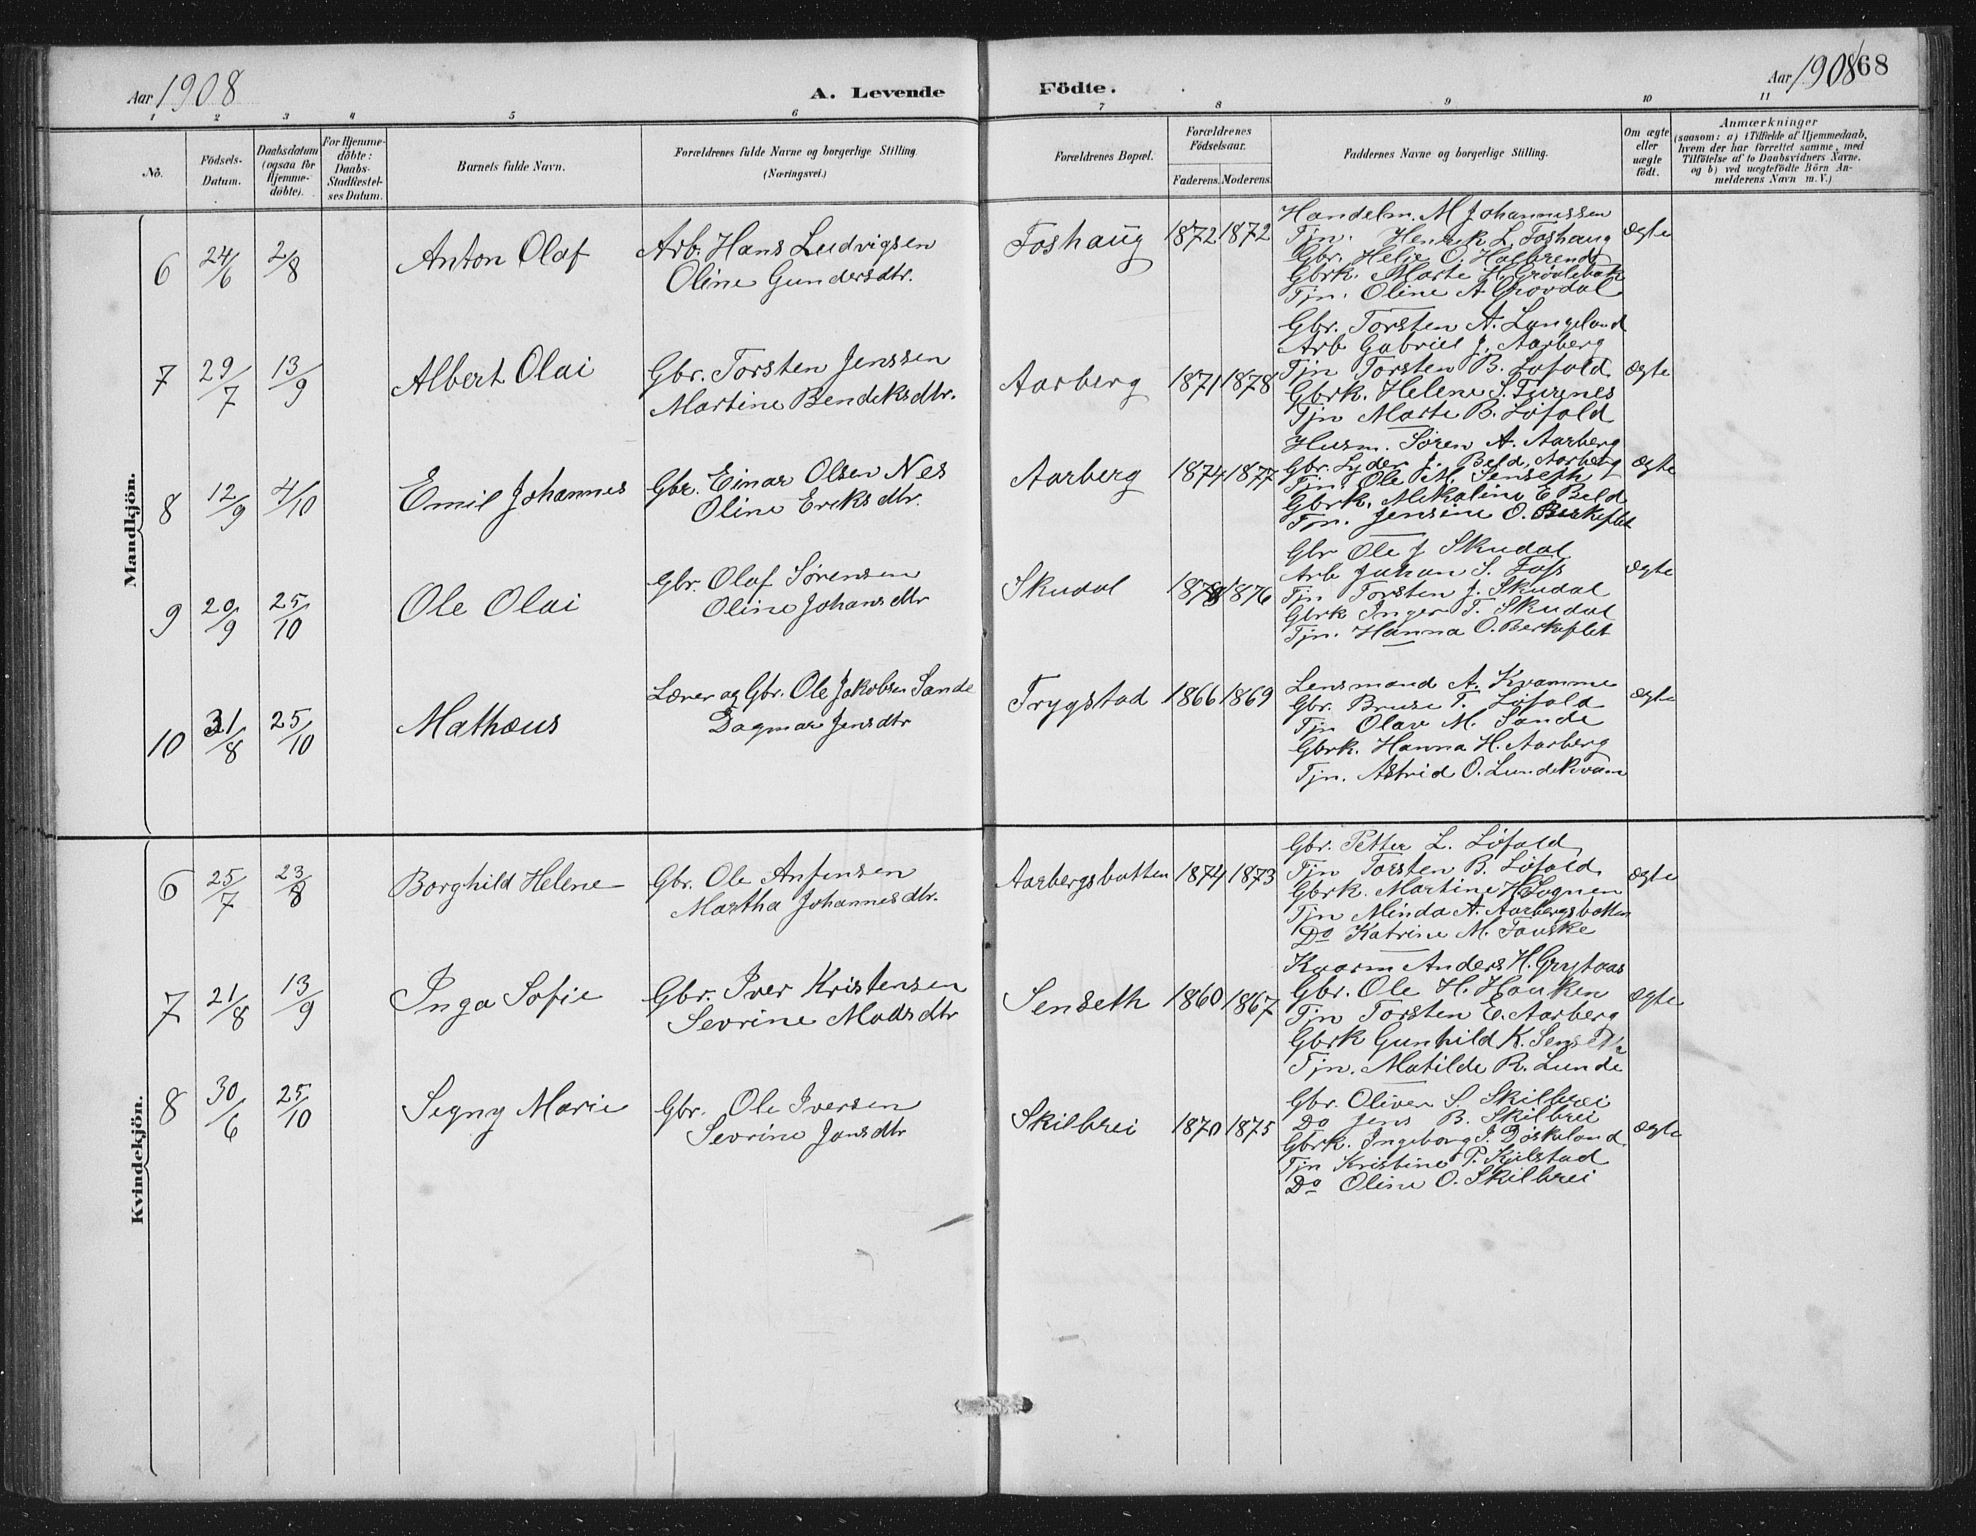 Aar 1908
A. Levende Födte.
Aar 1908
168
1 2 3 4 5 6 7 8 9 10 11
No.
Födsels-Datum.
Daabsdatum (ogsaa för Hjemme-döbte).
For Hjemme-döbte: Daabs-Stadfæstel-ses Datum.
Barnets fulde Navn.
Forældrenes fulde Navne og borgerlige Stilling.
(Næringsvei.)
Forældrenes Bopæl.
Forældrenes Födselsaar.
Faderens. Moderens.
Faddernes Navne og borgerlige Stilling.
Om ægte eller uægte födt.
Anmærkninger
(saasom: a) i Tilfælde af Hjemmedaab, hvem der har forrettet samme, med Tilföielse af to Daabsvidners Navne, og b) ved uægtefödte Börn An-melderens Navn m. V.)
Mandkjön.
6 24/6 2/8 Anton Olaf
Arb. Hans Ludvigsen
Oline Gundersdtr.
Foshaug 1872 1872
Handelm. M Johannessen
Tjn. Henrik L. Foshaug
Gbr. Helje O.
Gbrk. Marte H.
Tjn. Oline A Grovdal
Ægte
7 29/7 13/9 Albert Olai
Gbr. Torsten Jenssen
Martine Bendiksdtr.
Aarberg 1871 1878
Gbr. Torsten A. Langeland
Arb Gabriel J. Aarberg
Tjn Torsten B. Löfald
Gbrk. Helene S. Furnes
Tjn Marte B. Löfald
Ægte
8 12/9 4/10 Emil Johannes
Gbr. Einar Olsen Nes
Oline Eriksdtr.
Aarberg 1874 1877
Husm. Sören A. Aarberg
Gbr. Lyder J. Beld, Aarberg
Tjn. Ole M. Senseth
Gbrk. Mikaline E Beld
Tjn. Jensine O. Birkeflet
Ægte
9 20/9 25/10 Ole Olai
Gbr. Olaf Sørensen
Oline Johansdtr
Skudal 1876
Gbr Ole J Skudal
Arb Johan S. Foss
Tjn Torsten J. Skudal
Gbrk Inger T. Skudal
Tjn. Hanna O. Berkeflet
Ægte
10 31/8 25/10 Mathæus
Lærer og Gbr. Ole Jakobsen Sande
Dagmar Jensdtr
Trygstad 1866 1869
Lensmand A. Kvamme
Gbr. Bruse T. Löfald
Tjn Olav M. Sande
Gbrk. Hanna H. Aarberg
Tjn. Astrid O. Lundekvam
Ægte
Kvindekjön.
6 25/7 23/8 Borghild Helene
Gbr. Ole Anfensen
Martha Johannesdtr.
Aarbergsbotten 1874 1873
Gbr. Petter L. Löfald
Tjn Torsten B. Löfald
Gbrk. Martine H Sognen
Tjn Minda A. Aarbergsbotten
Do Katrine M. Fauske
Ægte
7 21/8 13/9 Inga Sofie
Gbr. Iver Kristensen
Sevrine Madsdtr
Senseth 1860 1867
Kaarm Anders H. Grytaas
Gbr. Ole H. Hauken
Tjn Torsten E. Aarberg
Gbrk Gunhild K. Senseth
Tjn. Matilde R. Lunde
Ægte
8 30/6 25/10 Signy Marie
Gbr. Ole Iversen
Sevrine Jansdtr
Skilbrei 1870 1875
Gbr. Oliver S. Skilbrei
Do Jens B. Skilbrei
Gbrk. Ingeborg J. Döskeland.
Tjn Kristine P. Kjilstad
Do Oline O. Skilbrei
Ægte